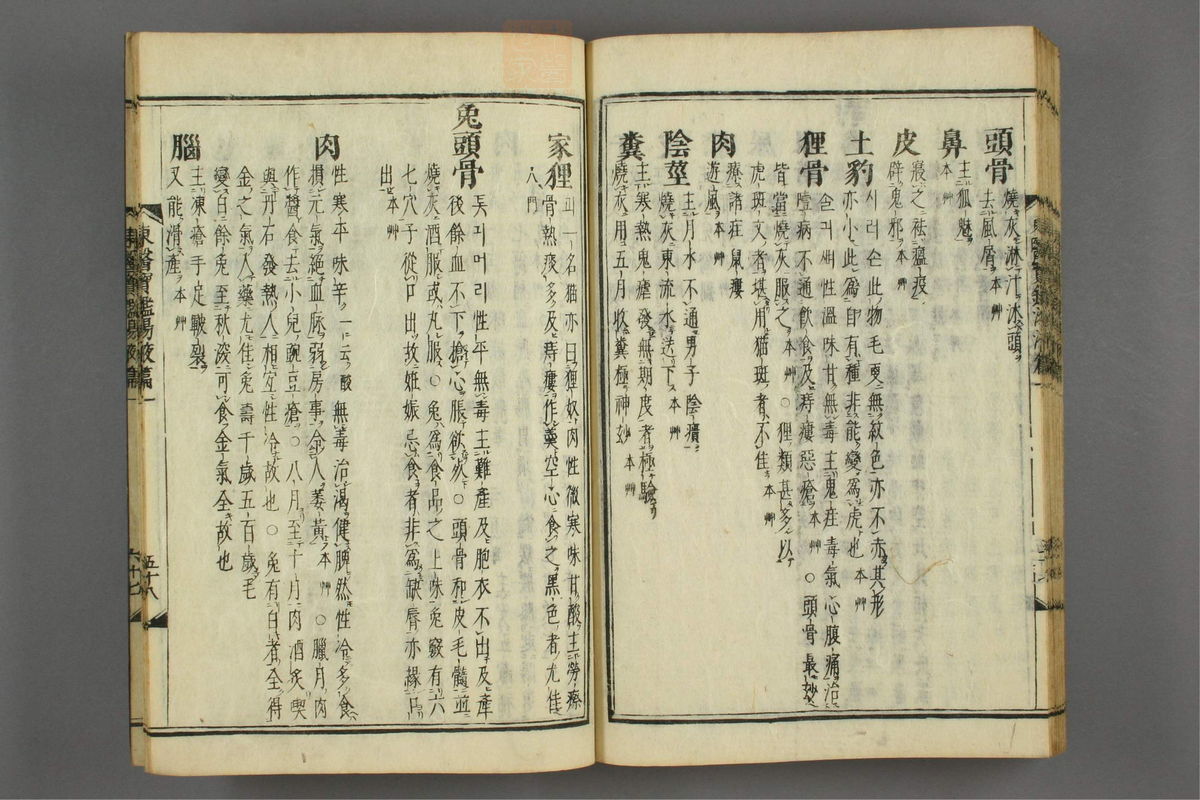 頭骨 燒灰淋汁沐頭
去風屑 本艸
鼻 主狐魅
本艸
皮 寢之祛瘟疫
辟鬼邪 本艸
土豹 시라손此物毛更無紋色亦不赤其形
亦小此爲印有種非能變爲虎也 本艸
狸骨 性溫味甘無毒主鬼疰毒氣心腹痛治
噎病不通飮食及痔瘻惡瘡 本艸 ○頭骨最妙
皆當燒灰服之 本艸 ○狸類甚多以
虎斑文者堪用猫斑者不佳 本艸
肉 療諸疰鼠瘻
遊風 本艸
陰莖 主月水不通男子陰㿉
燒灰東流水送下 本艸
糞 主寒熱鬼瘧發無期度者極驗
燒灰用五月收糞極神妙 本艸
家狸 괴一名猫亦曰狸奴肉性微寒味甘酸主勞瘵
骨熱痰多及痔瘻作羹空心食之黑色者尤佳
入門
兎頭骨 톳긔머리性平無毒主難產及胞衣不出及產
後餘血不下搶心脹欲死○頭骨和皮毛髓並
燒灰酒服或丸服○兎爲食品之上味兎竅有六
七穴子從口出故姙娠忌食者非爲缺脣亦緣口
出 本艸
肉 性寒平味辛 一云酸 無毒治渴健脾然性冷多食
損元氣絕血脉弱房事令人萎黃 本艸 ○臘月肉
作醬食去小兒豌豆瘡○八月至十月肉酒炙喫
與丹石發熱人相宜性冷故也○兎有白者全得
金之氣入藥尤佳兎壽千歲五百歲毛
變白餘兎至秋深可食金氣全故也
腦 主凍瘡手足皸裂
又能滑產 本艸
東醫寶鑑湯液篇一
五十八